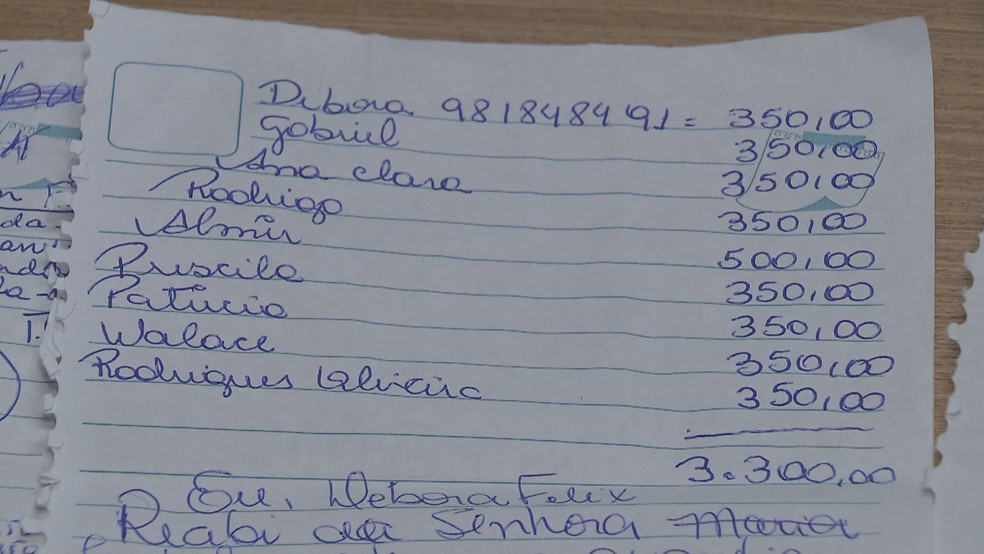 Debora 981848491= 350,00
Gabriel 350,00
Ana clara 350,00
Rodrigo 350,00
Almir 500,00
Priscila 350,00
Patricia 350,00
Walace 350,00
Rodrigues 350,00
3.300,00
Eu, Debora Felix
Reabi da Senhora Maria